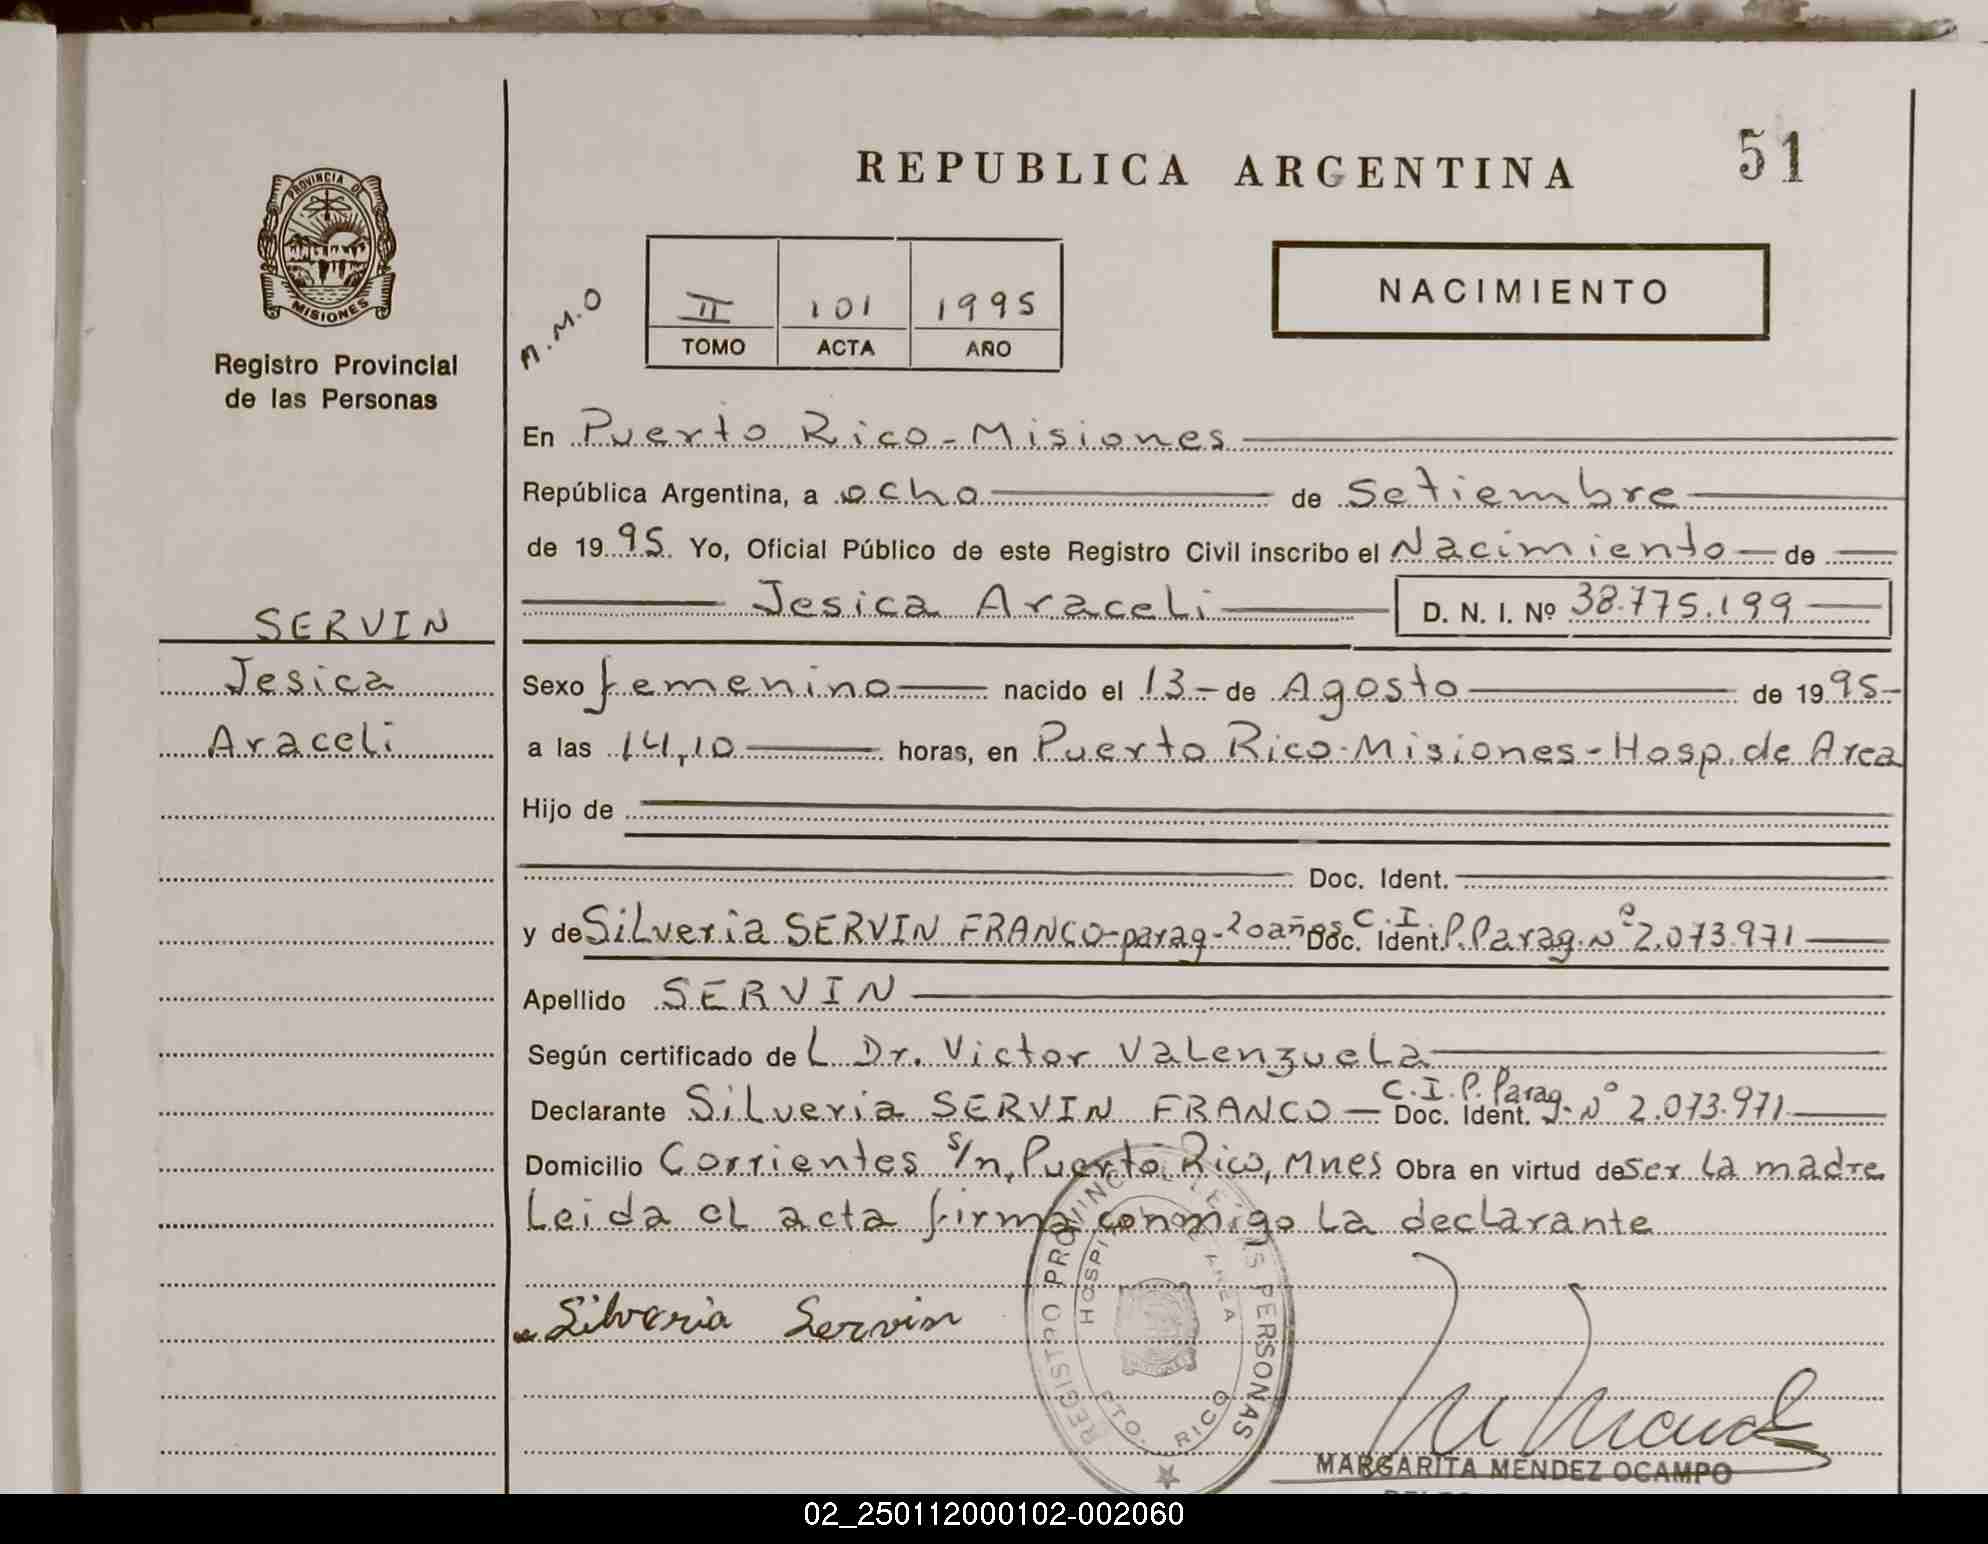 REPUBLICA ARGENTINA
51
PROVINCIA DE
MISIONES
Registro Provincial
de las Personas
M.M.O
II 101 1995
TOMO ACTA AÑO
NACIMIENTO
En Puerto Rico - Misiones
República Argentina, a ocho de Setiembre
de 1995. Yo, Oficial Público de este Registro Civil inscribo el Nacimiento de
Jesica Araceli D. N. I. Nº 38.775.199
SERVIN
Jesica
Araceli
Sexo femenino nacido el 13 - de Agosto de 1995 -
a las 14,10 horas, en Puerto Rico - Misiones - Hosp. de Area
Hijo de
Doc. Ident.
y de Silveria SERVIN FRANCO - parag - 20 años Doc. Ident. C.I.P. Parag. Nº 2.073.971
Apellido SERVIN
Según certificado del Dr. Victor Valenzuela
Declarante Silveria SERVIN FRANCO - Doc. Ident. C.I.P. Parag. Nº 2.073.971
Domicilio Corrientes s/n, Puerto Rico, Mnes Obra en virtud de ser la madre
Leida el acta firma conmigo la declarante
Silveria Servin
REGISTRO PROVINCIAL DE LAS PERSONAS
HOSPITAL DE AREA
PTO. RICO
MARGARITA MENDEZ OCAMPO
02_250112000102-002060